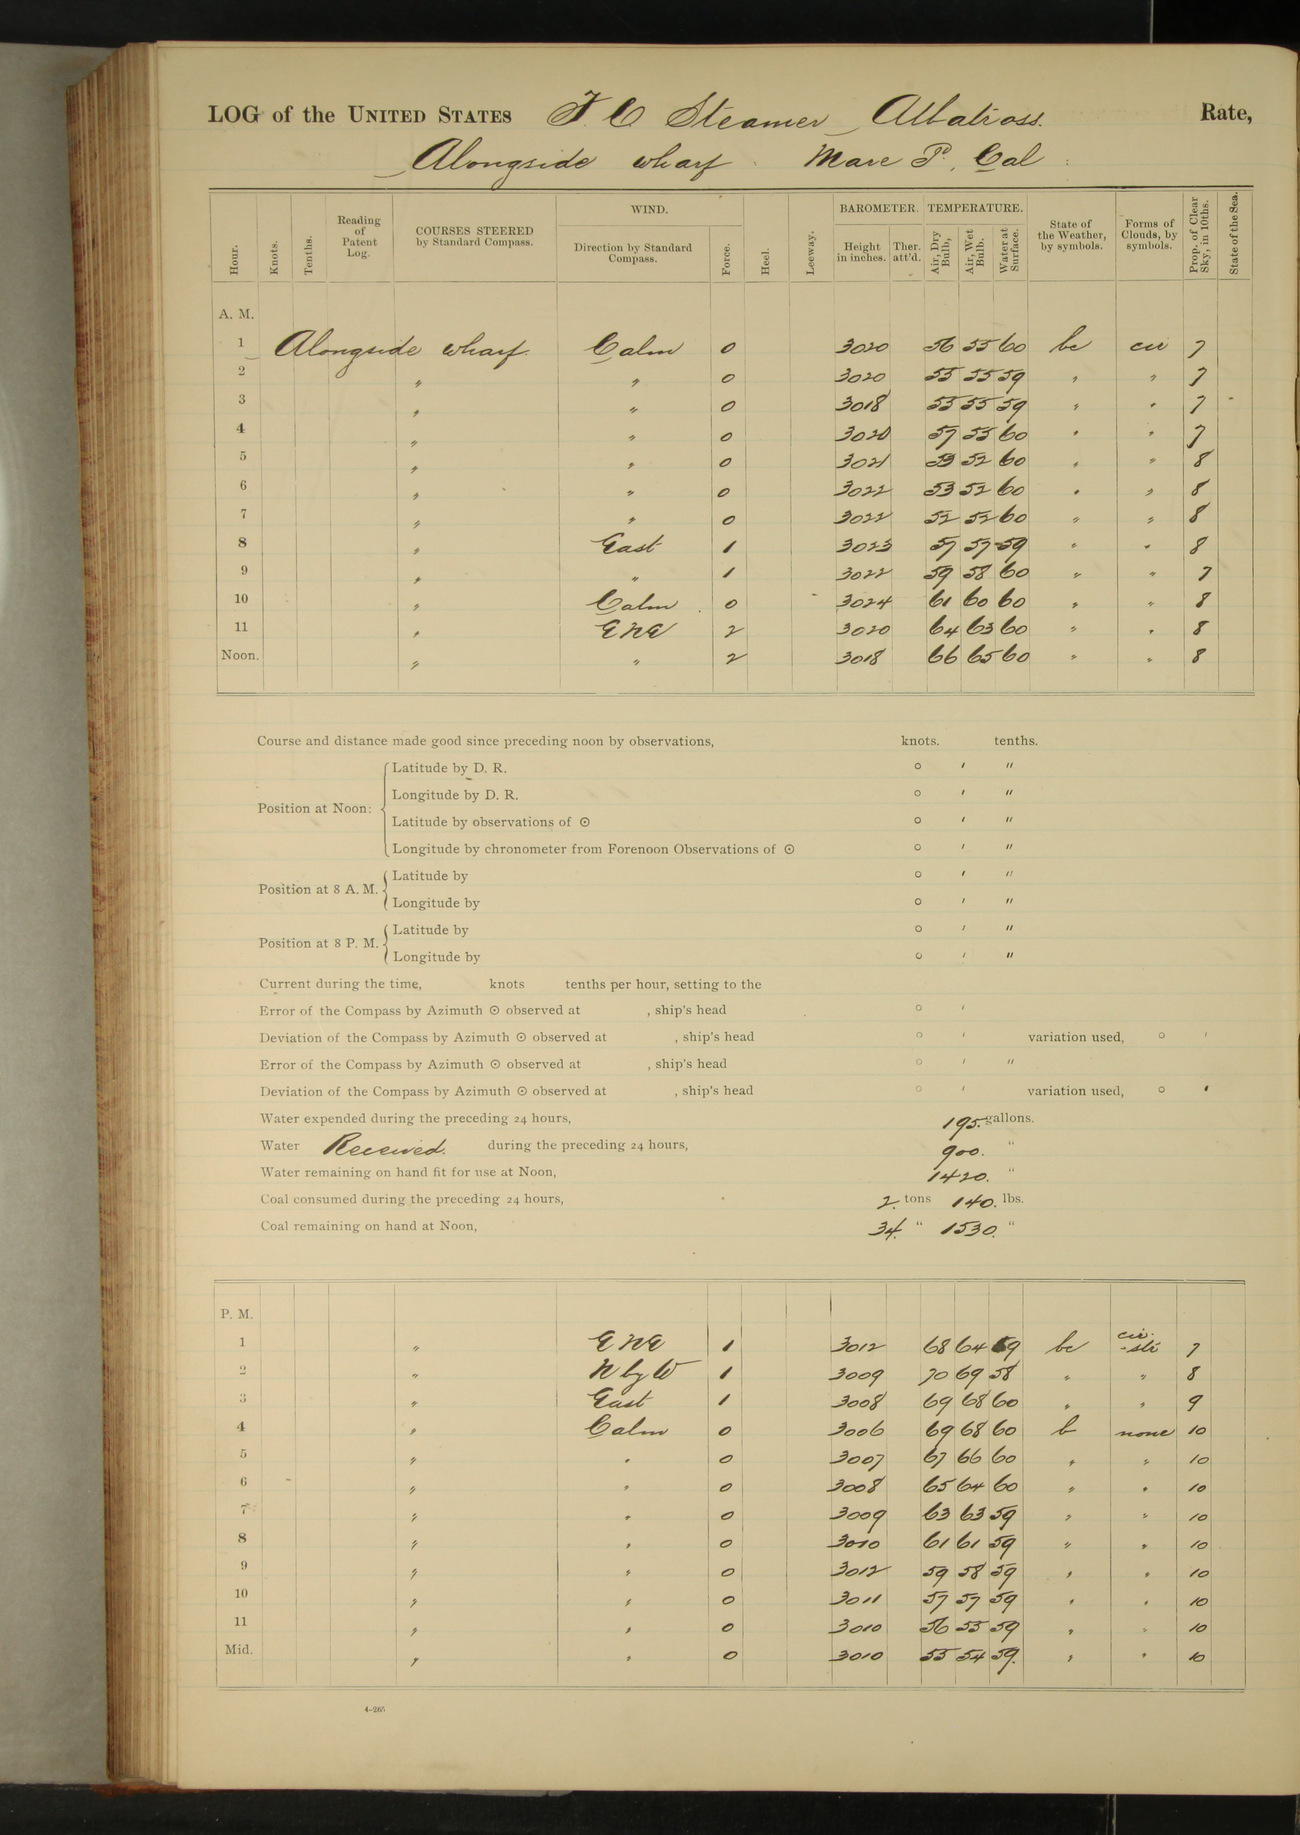 LOG of the UNITED STATES F. C. Steamer Albatross. Rate,
Alongside wharf Mare Id., Cal
Hour. Knots. Tenths. Reading of Patent Log. COURSES STEERED by Standard Compass. WIND. Direction by Standard Compass. Force. Heel. Leeway. BAROMETER. Height in inches. Ther. att'd. TEMPERATURE. Air, Dry Bulb. Air, Wet Bulb. Water at Surface. State of the Weather, by symbols. Forms of Clouds, by symbols. Prop. of Clear Sky, in 10ths. State of the Sea.
A. M.
1 Alongside wharf. Calm 0 3020 56 55 60 bc cir 7
2 " " 0 3020 55 55 59 " " 7
3 " " 0 3018 55 55 59 " " 7
4 " " 0 3020 57 55 60 " " 7
5 " " 0 3021 53 52 60 " " 8
6 " " 0 3022 53 52 60 " " 8
7 " " 0 3022 52 52 60 " " 8
8 " East 1 3023 57 57 59 " " 8
9 " " 1 3022 59 58 60 " " 7
10 " Calm 0 3024 61 60 60 " " 8
11 " ENE 2 3020 64 63 60 " " 8
Noon. " " 2 3018 66 65 60 " " 8
Course and distance made good since preceding noon by observations, knots. tenths.
Position at Noon: Latitude by D. R. ° ' "
Longitude by D. R. ° ' "
Latitude by observations of ☉ ° ' "
Longitude by chronometer from Forenoon Observations of ☉ ° ' "
Position at 8 A. M. Latitude by ° ' "
Longitude by ° ' "
Position at 8 P. M. Latitude by ° ' "
Longitude by ° ' "
Current during the time, knots tenths per hour, setting to the
Error of the Compass by Azimuth ☉ observed at , ship's head ° '
Deviation of the Compass by Azimuth ☉ observed at , ship's head ° ' variation used, ° '
Error of the Compass by Azimuth ☉ observed at , ship's head ° ' "
Deviation of the Compass by Azimuth ☉ observed at , ship's head ° ' variation used, ° '
Water expended during the preceding 24 hours, 195. gallons.
Water Received. during the preceding 24 hours, 900. "
Water remaining on hand fit for use at Noon, 1420. "
Coal consumed during the preceding 24 hours, 2. tons 140. lbs.
Coal remaining on hand at Noon, 34. " 1530. "
P. M.
1 " ENE 1 3012 68 64 59 bc cir.-str 7
2 " N by W 1 3009 70 69 58 " " 8
3 " East 1 3008 69 68 60 " " 9
4 " Calm 0 3006 69 68 60 b none 10
5 " " 0 3007 67 66 60 " " 10
6 " " 0 3008 65 64 60 " " 10
7 " " 0 3009 63 63 59 " " 10
8 " " 0 3010 61 61 59 " " 10
9 " " 0 3012 59 58 59 " " 10
10 " " 0 3011 57 57 59 " " 10
11 " " 0 3010 56 55 59 " " 10
Mid. " " 0 3010 55 54 59. " " 10
4-265